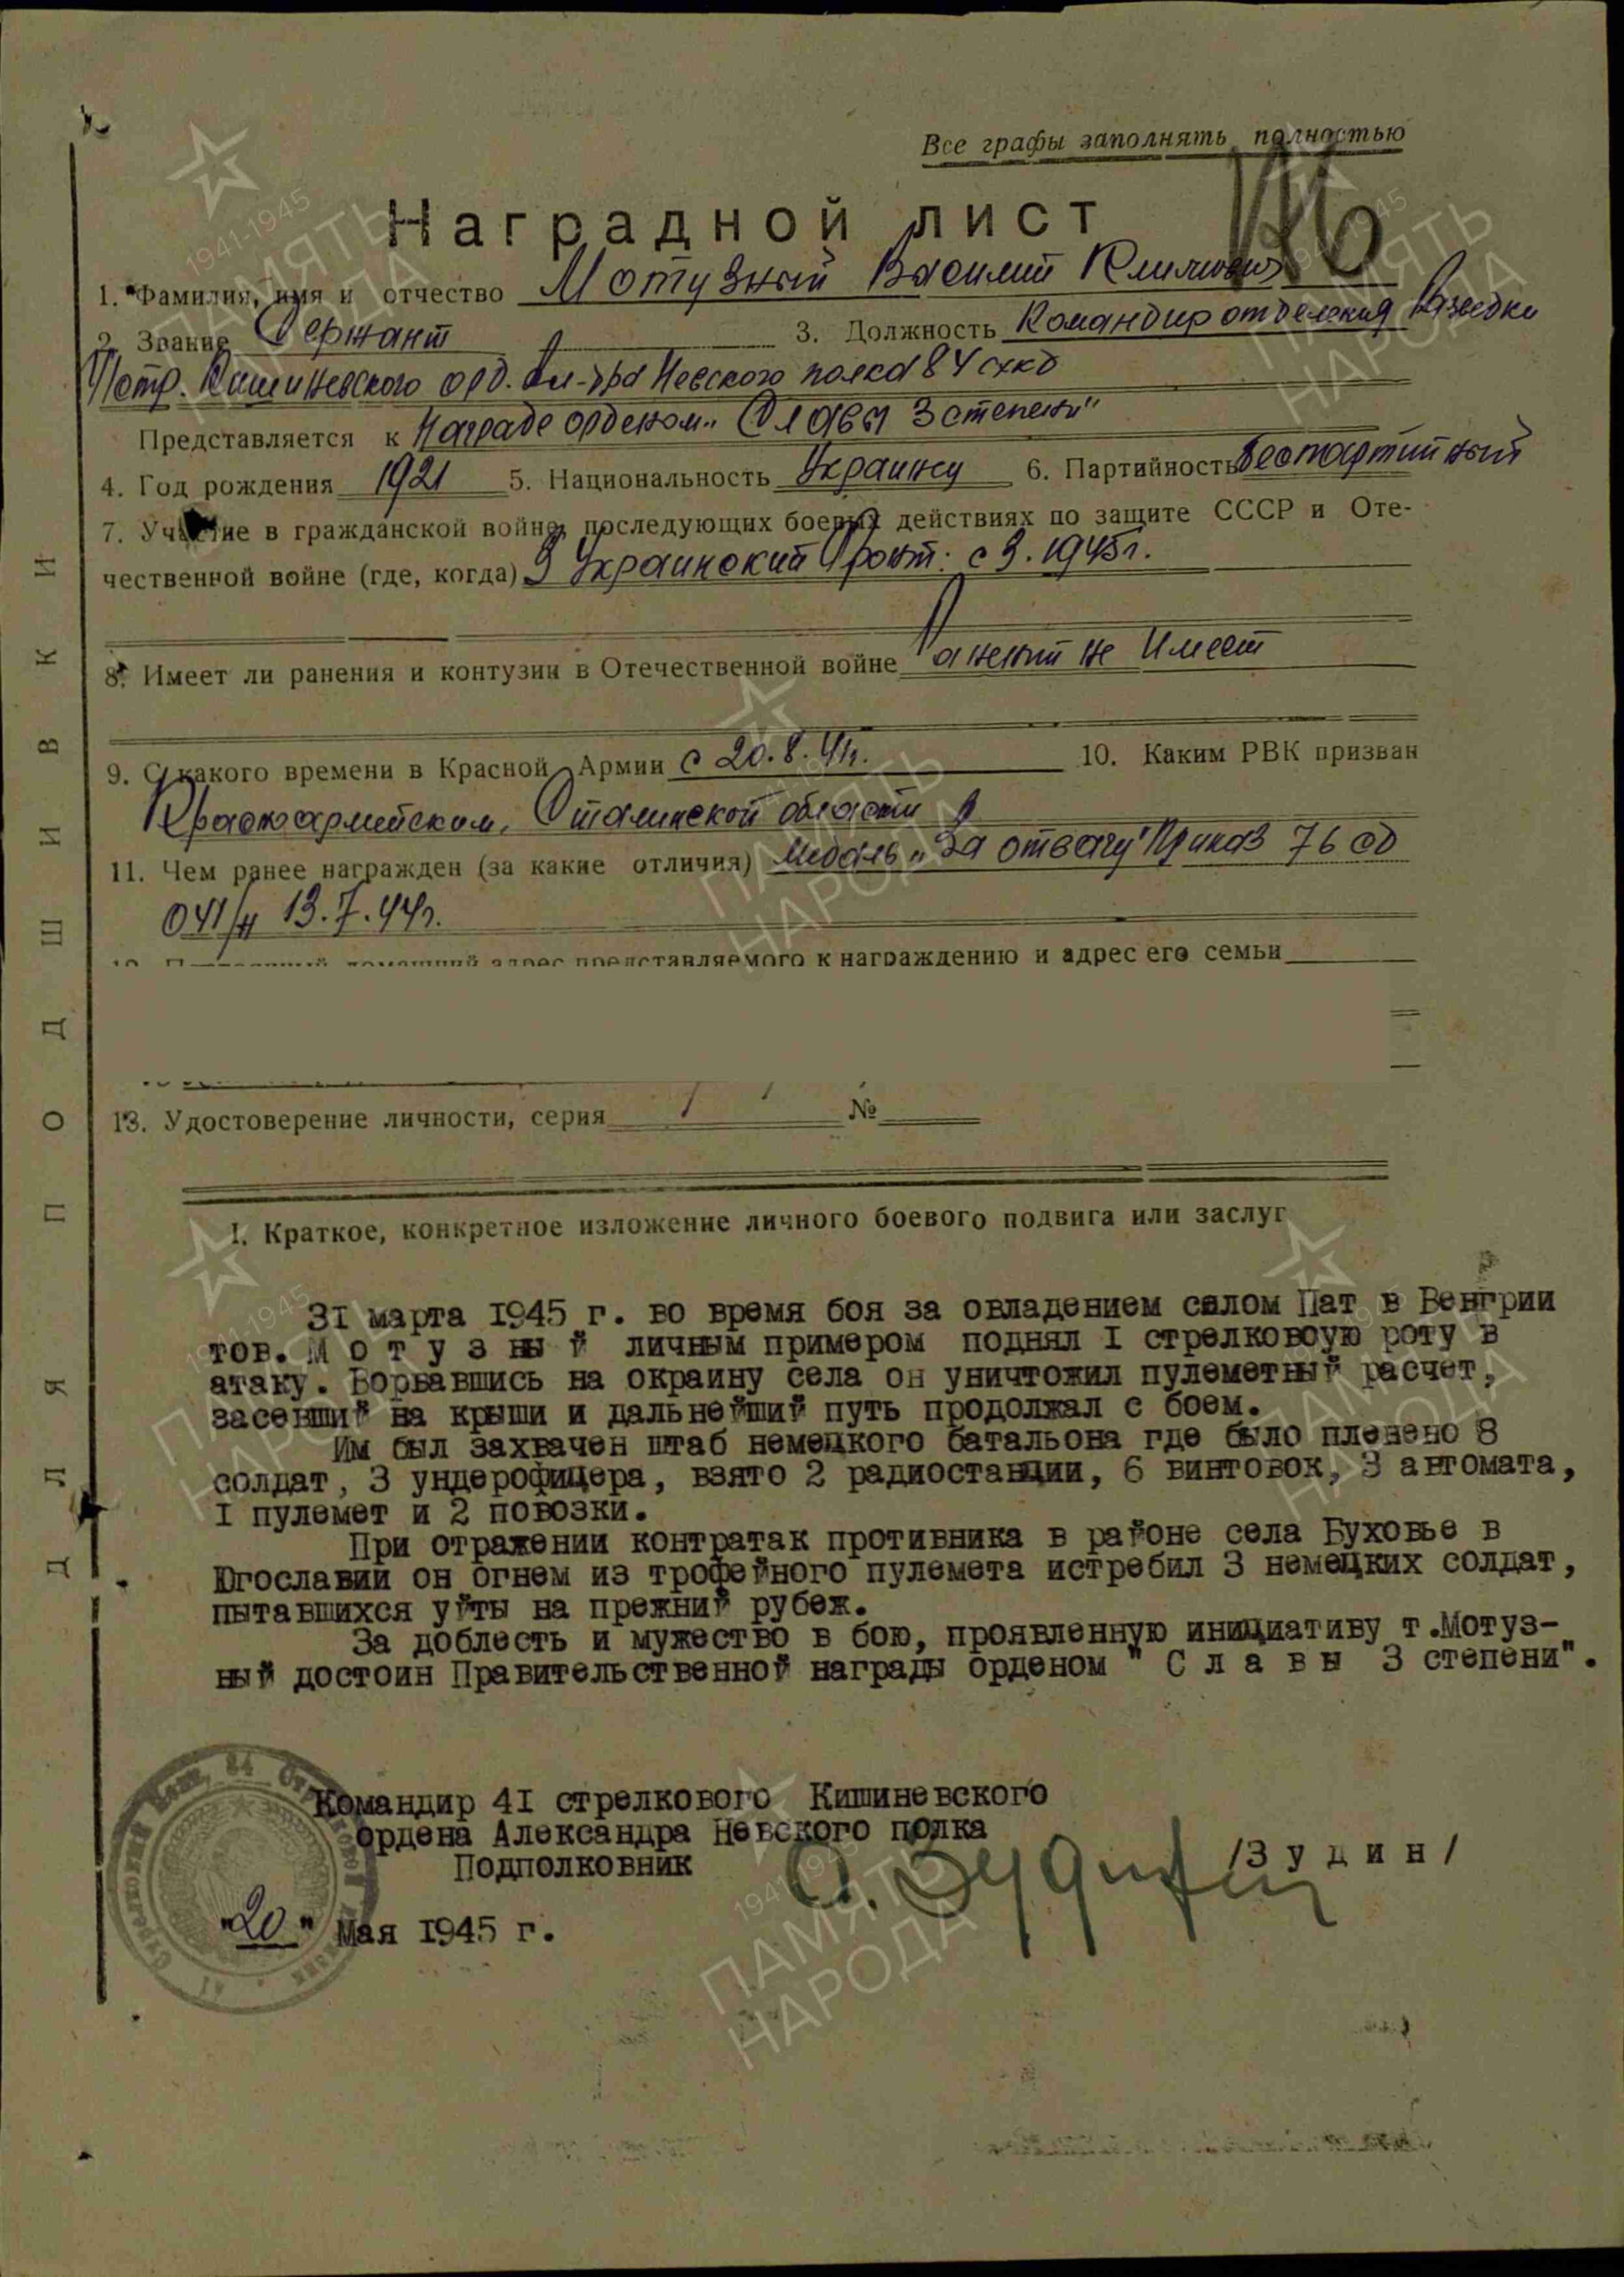 Все графы заполнять полностью
Наградной лист
1. Фамилия, имя и отчество Мотузный Василий
2. Звание Сержант 3. Должность Командир отделения Разведки
Кишиневского орд. Ал-дра Невского полка 84
Представляется к Награде орденом „Славы 3 степени"
4. Год рождения 1921 5. Национальность Украинец 6. Партийность беспартийный
7. Участие в гражданской войне, последующих боевых действиях по защите СССР и Оте-
чественной войне (где, когда) 3 Украинский Фронт: с 3. 1945г.
8. Имеет ли ранения и контузии в Отечественной войне Ранений не Имеет
9. С какого времени в Красной Армии с 20.8.41г. 10. Каким РВК призван
Красноармейским, Сталинской области
11. Чем ранее награжден (за какие отличия) Медаль „За отвагу" Приказ 76 сд
041/н 13.7.44г.
домашний адрес представляемого к награждению и адрес его семьи
13. Удостоверение личности, серия №
I. Краткое, конкретное изложение личного боевого подвига или заслуг
31 марта 1945 г. во время боя за овладением селом Пат в Венгрии
тов. М о т у з ны й личным примером поднял I стрелковоую роту в
атаку. Ворвавшись на окраину села он уничтожил пулеметный расчет,
засевший на крыши и дальнейший путь продолжал с боем.
Им был захвачен штаб немецкого батальона где было пленено 8
солдат, 3 ундерофицера, взято 2 радиостанции, 6 винтовок, 3 автомата,
I пулемет и 2 повозки.
При отражении контратак противника в районе села Буховье в
Югославии он огнем из трофейного пулемета истребил 3 немецких солдат,
пытавшихся уйты на прежний рубеж.
За доблесть и мужество в бою, проявленную инициативу т.Мотуз-
ный достоин Правительственной награды орденом " С л а в ы 3 степени".
Командир 41 стрелкового Кишиневского
ордена Александра Невского полка
Подполковник /З у д и н/
"20" Мая 1945 г.
ДЛЯ ПОДШИВКИ
1941-1945
ПАМЯТЬ
НАРОДА